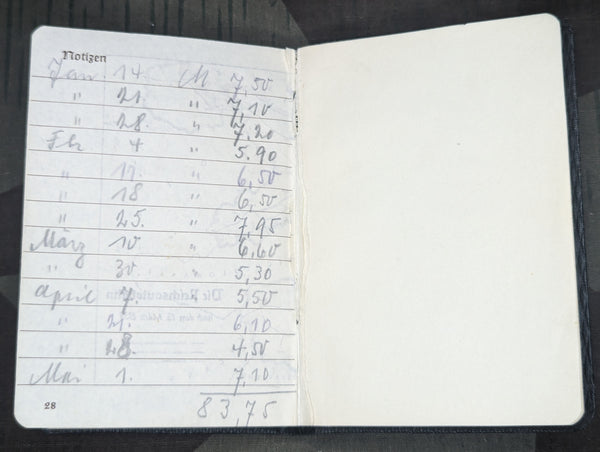 Notizen
Jan. 14 M 7,50
" 21. " 7,10
" 28. " 7,20
4 " 5.90
" 11. " 6,50
" 18 " 6,50
" 25. " 7,95
März 10 " 6,60
" 30. 5,30
April 7. 5,50
" 21. 6,10
" 28. 4,50
Mai 1. 7,10
83,75
28